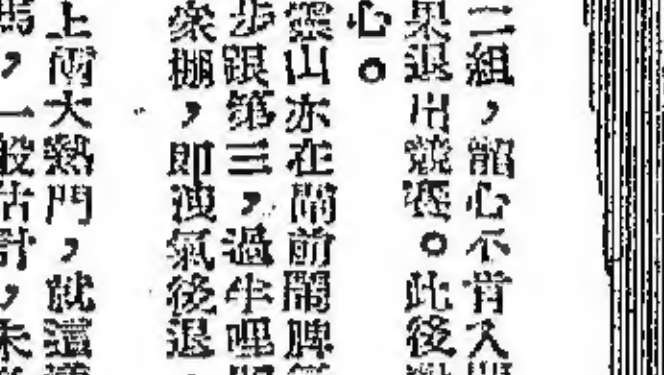 二組，龍心不肯入閘
果退出競賽。此後
心。
靈山亦在閘前鬧脾氣
步跟第三，過半哩
衆棚，即洩氣後退，
上兩大熱門，就這
馬，一般估計，未